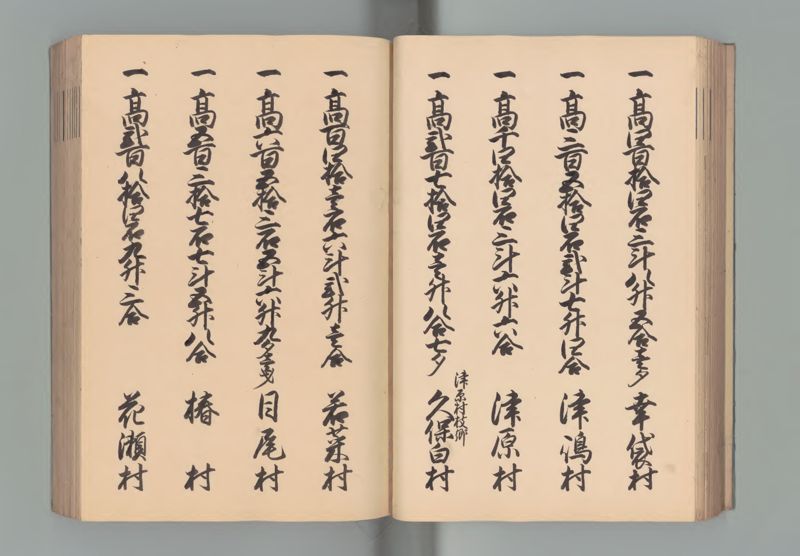 一高四百拾四石三斗八升五合壱夕　幸袋村
一高三百五拾四石弐斗七升四合　津嶋村
一高千四拾四石三斗六升六合　津原村
一高弐百七拾四石壱升八合七夕　津原村枝郷　久保白村
一高百四拾壱石六斗弐升壱合　若菜村
一高六百五拾三石五斗六升九夕　目尾村
一高五百三拾七石七斗五升八合　椿村
一高弐百八拾四石九升三合　花瀬村